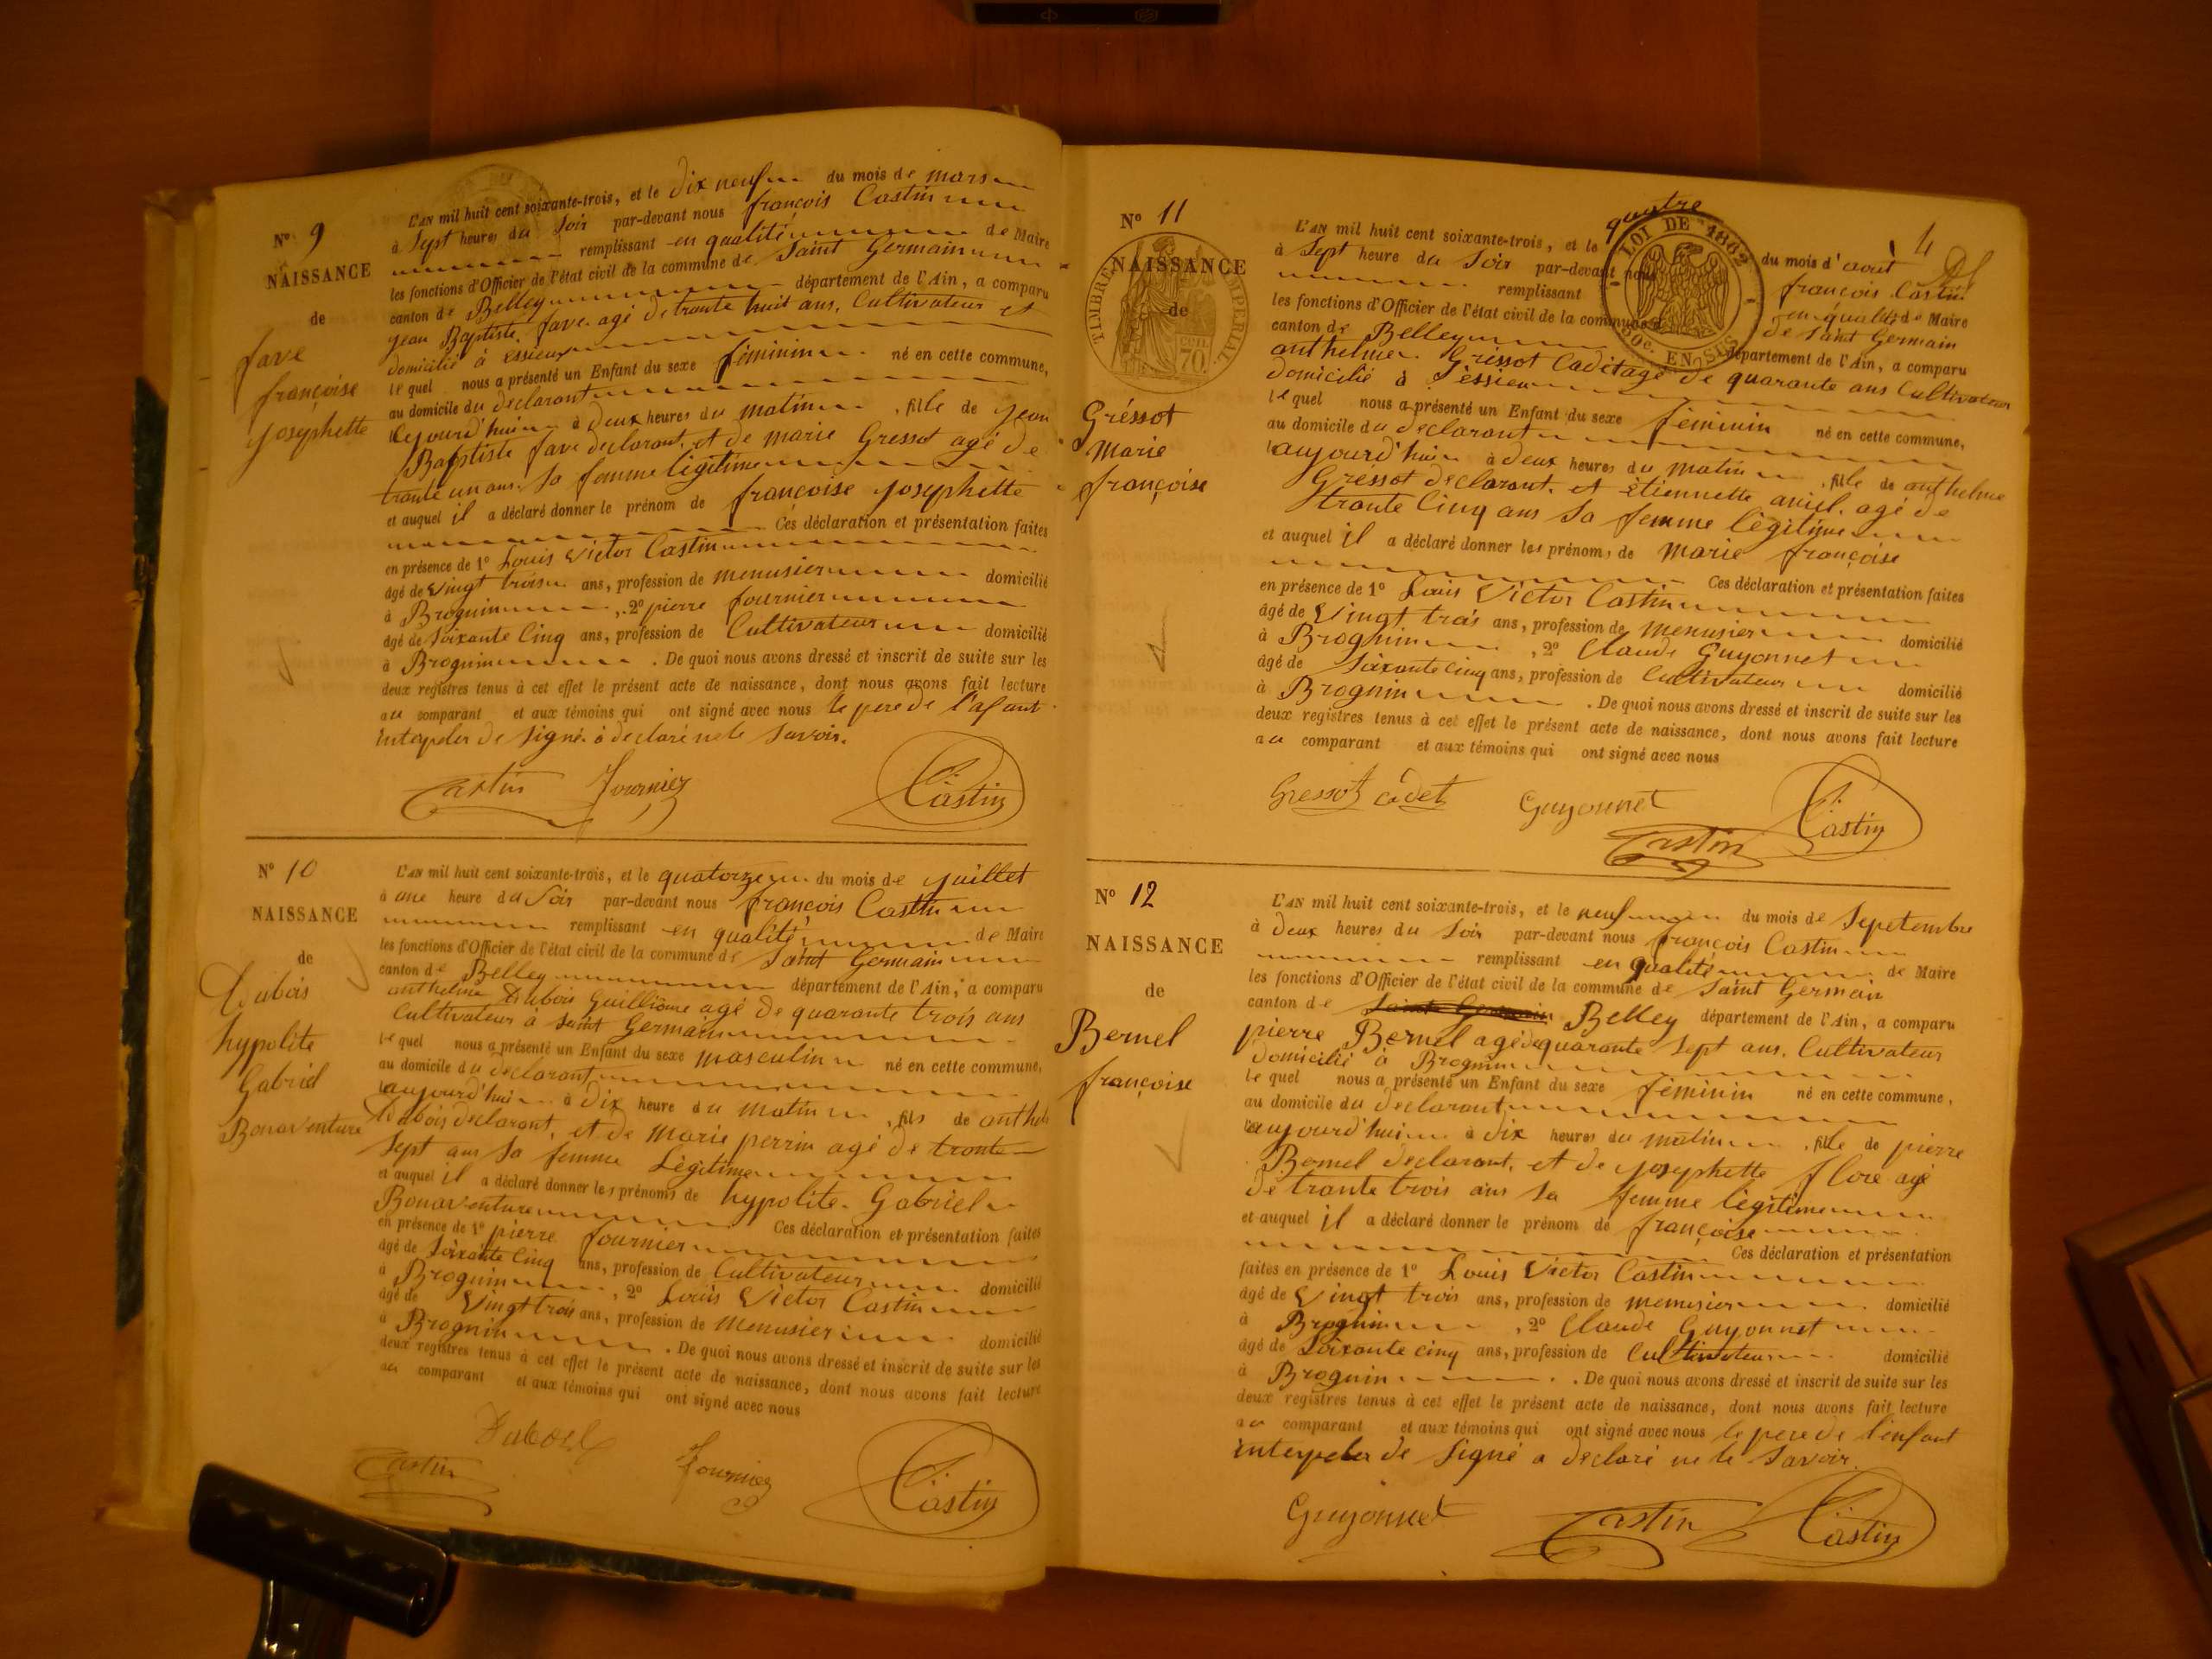 N° 9
NAISSANCE
de
fave
françoise
josephette
L'AN mil huit cent soixante-trois, et le dix neuf du mois de mars
à sept heures du soir par-devant nous françois Castin
remplissant en qualité de Maire
les fonctions d'Officier de l'état civil de la commune de Saint Germain
canton de Belley département de l'Ain, a comparu
jean Baptiste fave agé de trante huit ans, Cultivateur et
domicilié à essieux
le quel nous a présenté un Enfant du sexe féminin né en cette commune,
au domicile du declarant
le jourd'hui à deux heures du matin, fille de jean
Baptiste fave declarant, et de marie Gressot agé de
trante un ans. sa femme légitime
et auquel il a déclaré donner le prénom de françoise josephette
Ces déclaration et présentation faites
en présence de 1° Louis Victor Castin
âgé de vingt trois ans, profession de menusier domicilié
à Brognin, 2° pierre fournier
âgé de soixante cinq ans, profession de Cultivateur domicilié
à Brognin. De quoi nous avons dressé et inscrit de suite sur les
deux registres tenus à cet effet le présent acte de naissance, dont nous avons fait lecture
au comparant et aux témoins qui ont signé avec nous le pere de l'afant
interpeler de signé à declaré ne le savoir.
Castin Fournier Castin
N° 10
NAISSANCE
de
Dubois
hypolite
Gabriel
Bonaventure
L'AN mil huit cent soixante-trois, et le quatorze du mois de juillet
à une heure du soir par-devant nous françois Castin
remplissant en qualité de Maire
les fonctions d'Officier de l'état civil de la commune de Saint Germain
canton de Belley département de l'Ain, a comparu
anthelme Dubois Guillióme agé de quarante trois ans
Cultivateur à saint Germain
le quel nous a présenté un Enfant du sexe masculin né en cette commune,
au domicile du declarant
aujourd'hui à dix heure du matin, fils de anthel
Dubois declarant, et de marie perrin agé de trante
sept ans sa femme Légitime
et auquel il a déclaré donner les prénoms de hypolite. Gabriel
Bonaventure Ces déclaration et présentation faites
en présence de 1° pierre fournier
âgé de soixante cinq ans, profession de Cultivateur domicilié
à Brognin, 2° Louis Victor Castin
âgé de vingt trois ans, profession de menusier domicilié
à Brognin. De quoi nous avons dressé et inscrit de suite sur les
deux registres tenus à cet effet le présent acte de naissance, dont nous avons fait lecture
au comparant et aux témoins qui ont signé avec nous
Dubois
Castin Fournier Castin
4
N° 11
NAISSANCE
de
TIMBRE IMPERIAL
70
LOI DE 1862
Gréssot
Marie
françoise
L'AN mil huit cent soixante-trois, et le quatre du mois d'août
à sept heure du soir par-devant nous françois Castin
remplissant en qualité de Maire
les fonctions d'Officier de l'état civil de la commune de Saint Germain
canton de Belley département de l'Ain, a comparu
anthelme Grissot Cadet agé de quarante ans Cultivateur
domicilié à Sessieu
le quel nous a présenté un Enfant du sexe féminin né en cette commune,
au domicile du declarant
aujourd'hui à deux heures du matin, fille de anthelme
Gréssot declarant, et étiennette agé de
trante Cinq ans sa femme légitime
et auquel il a déclaré donner les prénoms de marie françoise
Ces déclaration et présentation faites
en présence de 1° Louis Victor Castin
âgé de vingt trois ans, profession de menusier domicilié
à Brognin, 2° Claude Guyonnet
âgé de soixante cinq ans, profession de Cultivateur domicilié
à Brognin. De quoi nous avons dressé et inscrit de suite sur les
deux registres tenus à cet effet le présent acte de naissance, dont nous avons fait lecture
au comparant et aux témoins qui ont signé avec nous
Gressot Cadet Guyonnet Castin
Castin
N° 12
NAISSANCE
de
Bernel
françoise
L'AN mil huit cent soixante-trois, et le neuf du mois de Sepetembre
à deux heures du soir par-devant nous françois Castin
remplissant en qualité de Maire
les fonctions d'Officier de l'état civil de la commune de Saint Germain
canton de Sainte Germain Belley département de l'Ain, a comparu
pierre Bernel agé de quarante sept ans. Cultivateur
domicilié à Brognin
le quel nous a présenté un Enfant du sexe féminin né en cette commune,
au domicile du declarant
aujourd'hui à dix heures du matin, fille de pierre
Bernel declarant, et de josephette flore agé
de trante trois ans sa femme légitime
et auquel il a déclaré donner le prénom de françoise
Ces déclaration et présentation
faites en présence de 1° Louis Victor Castin
âgé de vingt trois ans, profession de menusier domicilié
à Brognin, 2° Claude Guyonnet
âgé de soixante cinq ans, profession de Cultivateur domicilié
à Brognin. De quoi nous avons dressé et inscrit de suite sur les
deux registres tenus à cet effet le présent acte de naissance, dont nous avons fait lecture
au comparant et aux témoins qui ont signé avec nous le pere de l'enfant
interpeler de signé a declaré ne le savoir.
Guyonnet Castin Castin